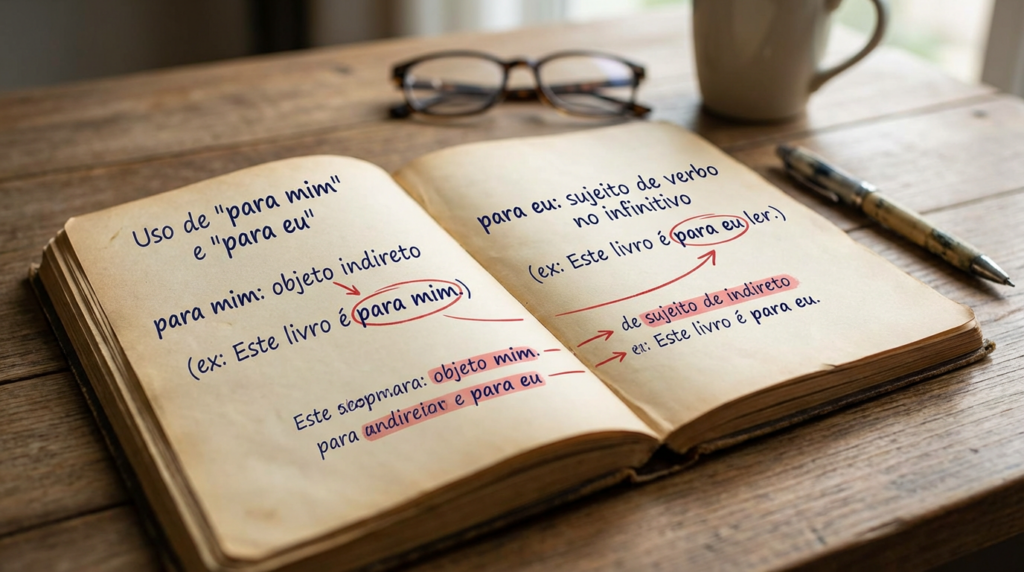 Uso de "para mim"
e "para eu"
para mim: objeto indireto
(ex: Este livro é para mim.)
Este seopmara: objeto mim.
para andireior e para eu
para eu: sujeito de verbo
no infinitivo
(ex: Este livro é para eu ler.)
de sujeito de indireto
ex: Este livro é para eu.